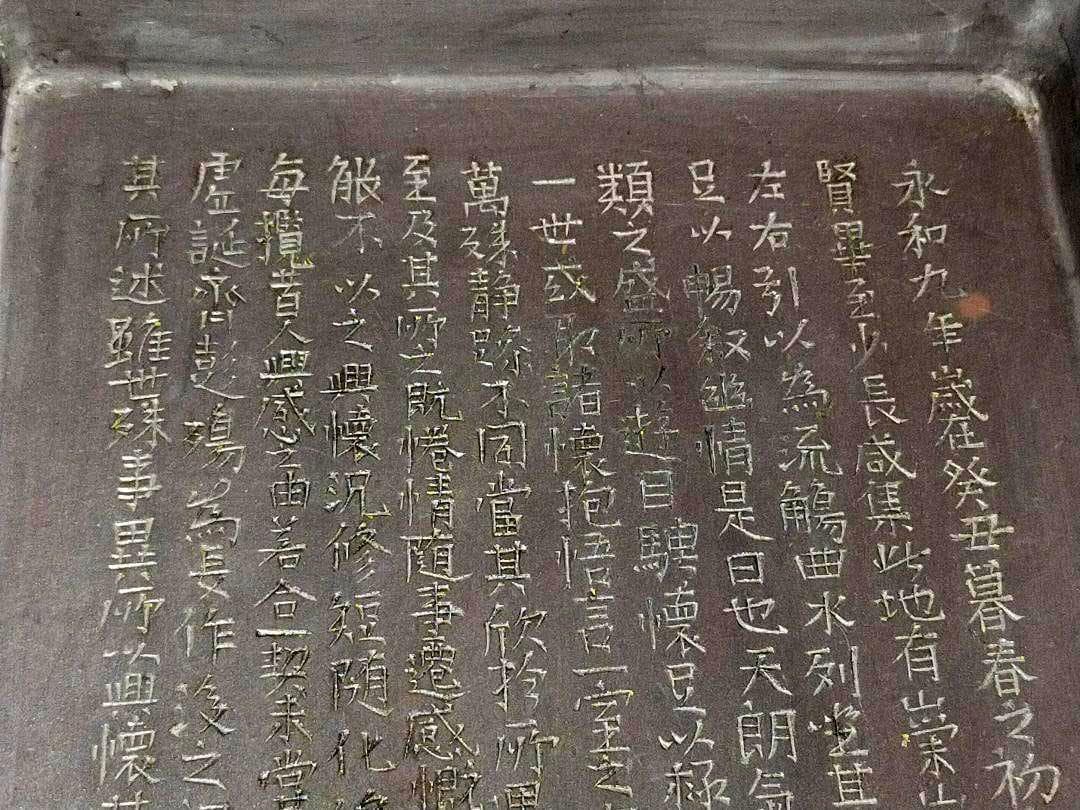 永和九年歲在癸丑暮春之初
賢畢至少長咸集此地有崇山
左右引以為流觴曲水列坐其
足以暢叙幽情是日也天朗氣
類之盛所以遊目騁懷足以極
一世或取諸懷抱悟言一室之
萬殊静躁不同當其欣於所遇
至及其所之既惓情随事遷感慨
能不以之興懷況修短随化
每攬昔人興感之由若合一契未嘗
虛誕齊彭殤為妄作後之
其所述雖世殊事異所以興懷其